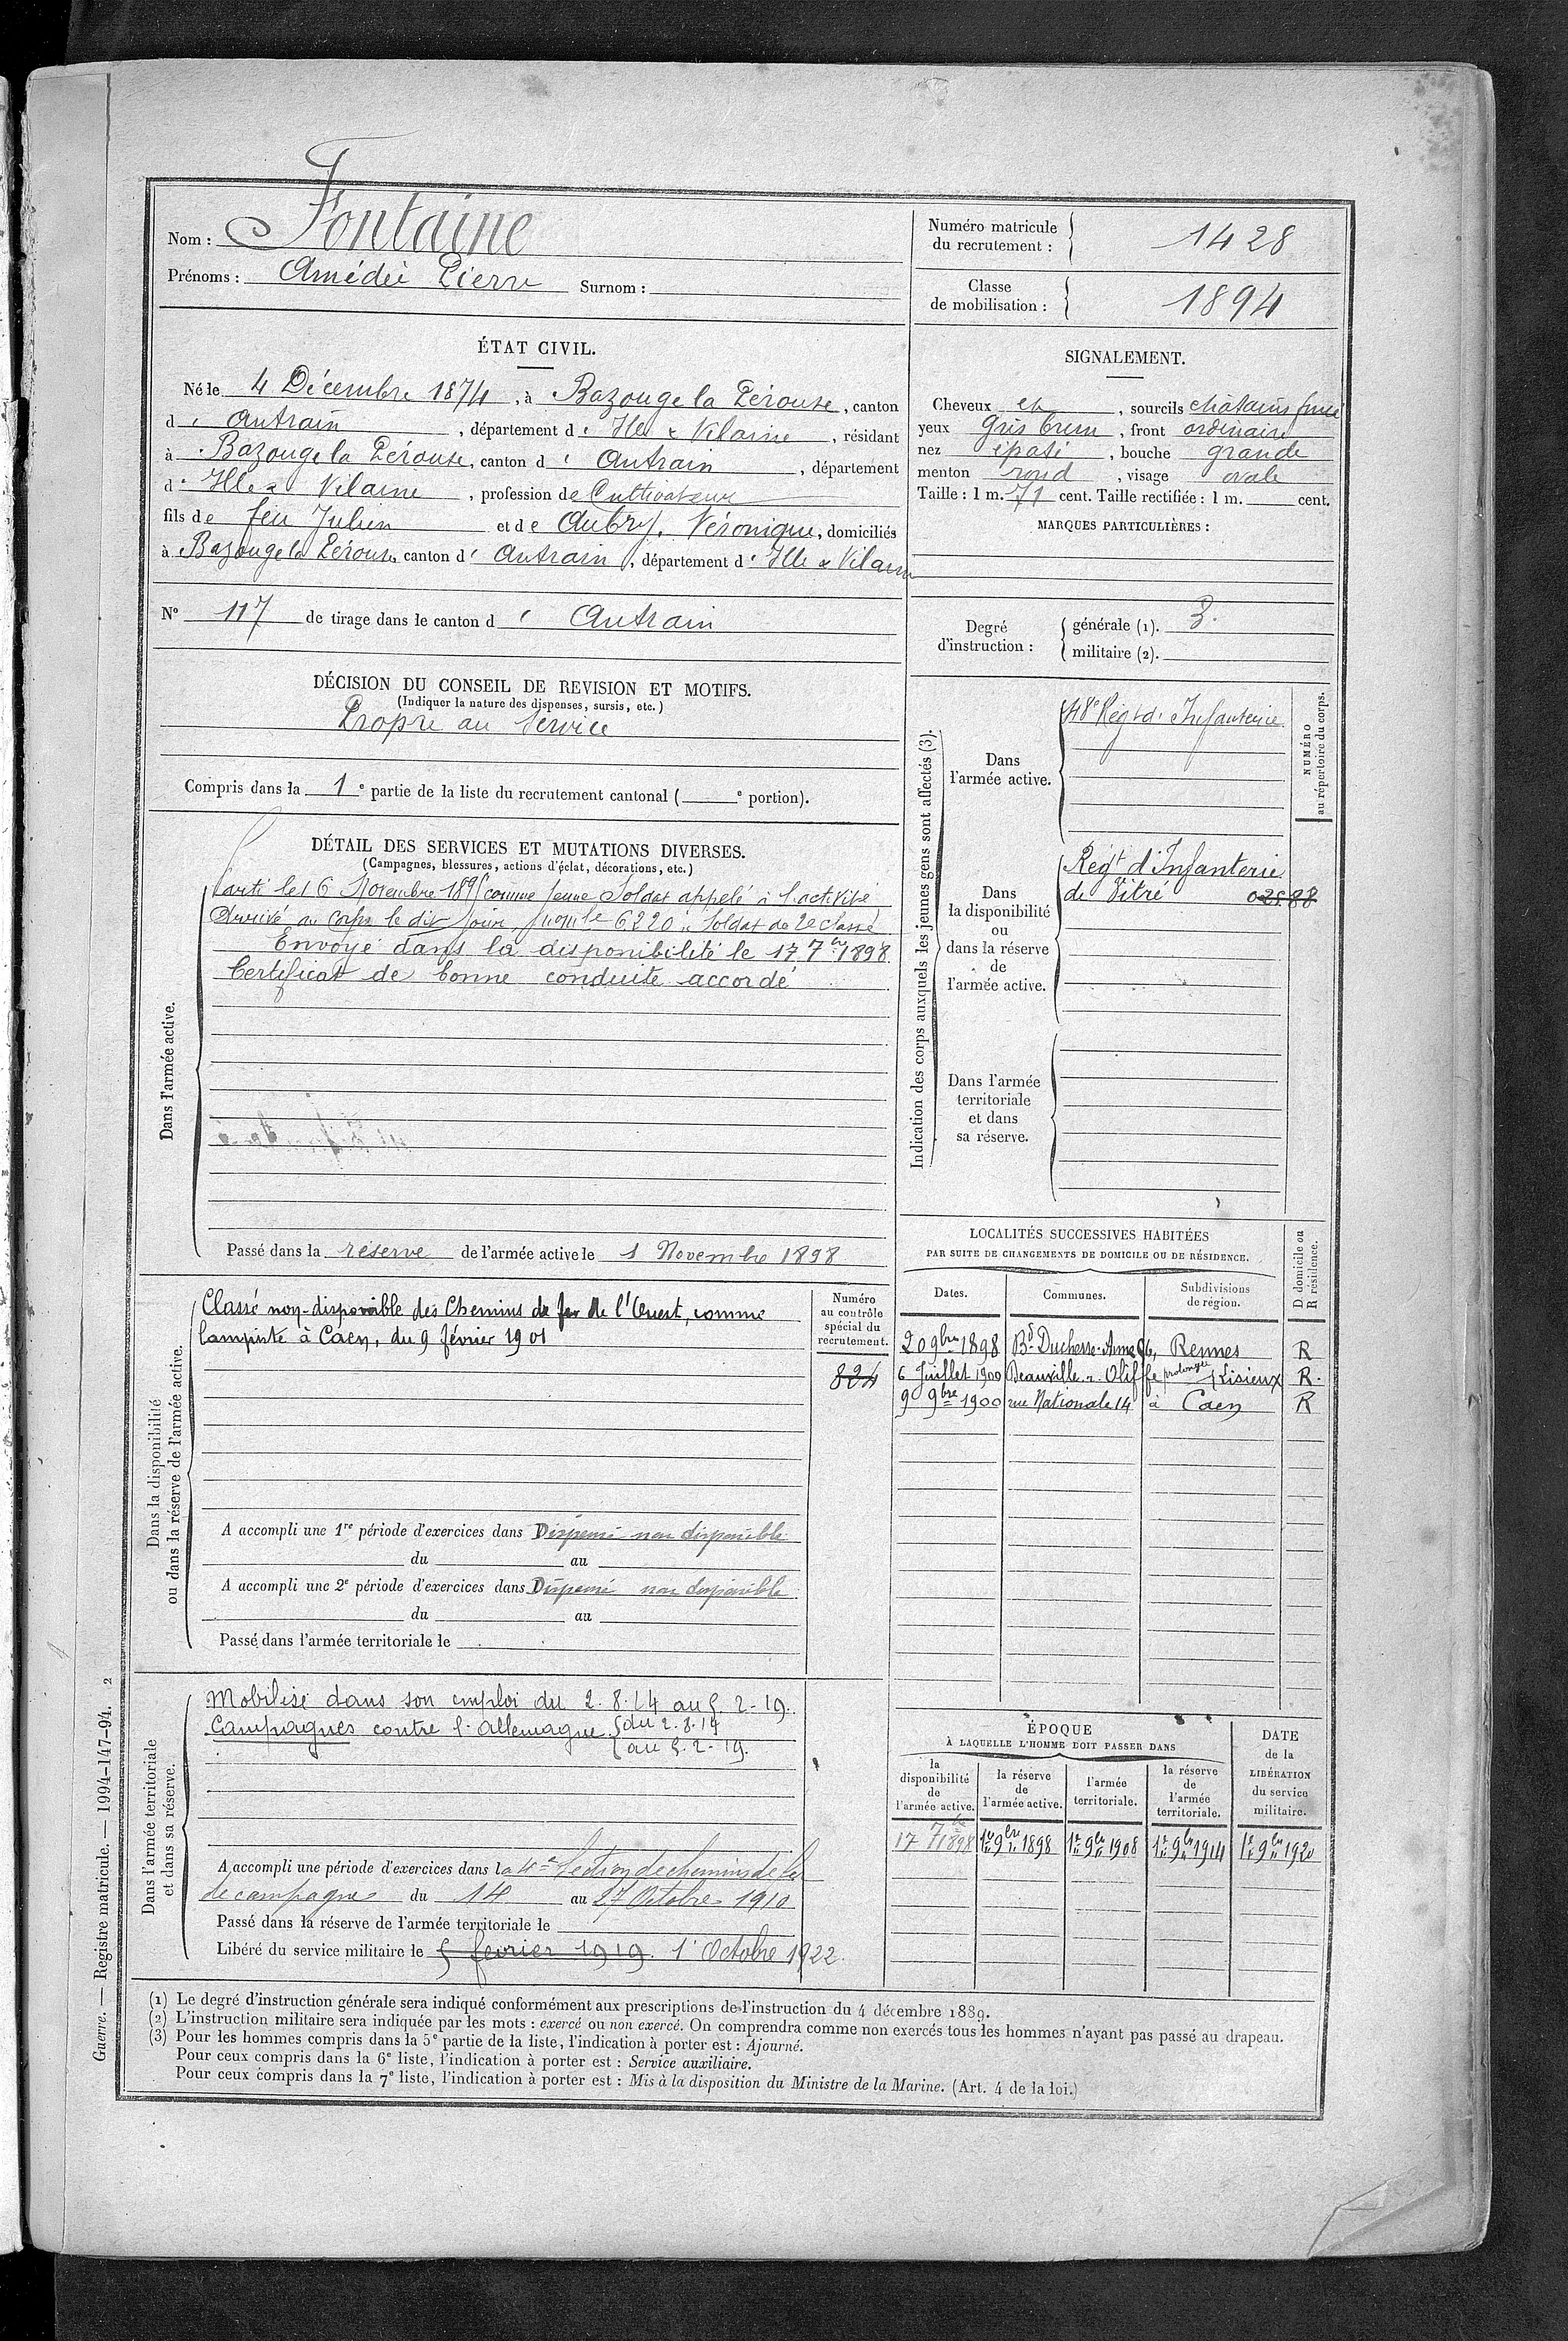 Nom : Fontaine
Prénoms : Amédée Pierre Surnom :
Numéro matricule du recrutement : 1428
Classe de mobilisation : 1894
ÉTAT CIVIL.
Né le 4 Décembre 1874, à Bazouge la Pérouse, canton
d' Antrain, département d' Ille & Vilaine, résidant
à Bazouge la Pérouse, canton d' Antrain, département
d' Ille & Vilaine, profession de Cultivateur
fils de feu Julien et de Aubry, Véronique, domiciliés
à Bazouge la Pérouse, canton d' Antrain, département d' Ille & Vilaine
N° 117 de tirage dans le canton d' Antrain
SIGNALEMENT.
Cheveux et, sourcils châtains foncé
yeux gris brun, front ordinaire
nez épaté, bouche grande
menton rond, visage ovale
Taille : 1 m. 71 cent. Taille rectifiée : 1 m. cent.
MARQUES PARTICULIÈRES :
Degré d'instruction : générale (1). 3.
militaire (2).
DÉCISION DU CONSEIL DE REVISION ET MOTIFS.
(Indiquer la nature des dispenses, sursis, etc.)
Propre au Service
Compris dans la 1e partie de la liste du recrutement cantonal ( e portion).
DÉTAIL DES SERVICES ET MUTATIONS DIVERSES.
(Campagnes, blessures, actions d'éclat, décorations, etc.)
Dans l'armée active.
Parti le 16 Novembre 1895 comme jeune Soldat appelé à l'activité
Arrivé au corps le dit jour, 6220 Soldat de 2e classe
Envoyé dans la disponibilité le 17 7bre 1898
Certificat de bonne conduite accordé
Passé dans la réserve de l'armée active le 1 Novembre 1898
Indication des corps auxquels les jeunes gens sont affectés (3).
NUMÉRO
au répertoire du corps.
Dans
l'armée active.
48e Régt d' Infanterie
Dans
la disponibilité
ou
dans la réserve
de
l'armée active.
Régt d'Infanterie
de Vitré 02588
Dans l'armée
territoriale
et dans
sa réserve.
Dans la disponibilité
ou dans la réserve de l'armée active.
Classé non-disponible des Chemins de fer de l'Ouest, comme
lampiste à Caen, du 9 février 1901
Numéro
au contrôle
spécial du
recrutement.
824
A accompli une 1re période d'exercices dans Dispensé non disponible
du au
A accompli une 2e période d'exercices dans Dispensé non disponible
du au
Passé dans l'armée territoriale le
LOCALITÉS SUCCESSIVES HABITÉES
PAR SUITE DE CHANGEMENTS DE DOMICILE OU DE RÉSIDENCE.
D domicile ou
R résidence.
Dates.
Communes.
Subdivisions
de région.
20 9bre 1898 Bd Duchesse-Anne Rennes R
6 Juillet 1900 prolongée Lisieux R.
9 9bre 1900 rue Nationale 14 à Caen R
Dans l'armée territoriale
et dans sa réserve.
Mobilisé dans son emploi du 2.8.14 au 5.2-19.
Campagnes contre l'Allemagne { du 2.8.14
au 5.2-19.
A accompli une période d'exercices dans la 4e Section de chemins de fer
de campagne du 14 au 27 Octobre 1910
Passé dans la réserve de l'armée territoriale le
Libéré du service militaire le 5 fevrier 1919. 1' Octobre 1922
ÉPOQUE
À LAQUELLE L'HOMME DOIT PASSER DANS
DATE
de la
LIBÉRATION
du service
militaire.
la
disponibilité
de
l'armée active.
la réserve
de
l'armée active.
l'armée
territoriale.
la réserve
de
l'armée
territoriale.
17 7bre 1898 1er 9bre 1898 1er 9bre 1908 1er 9bre 1914 1er 9bre 1920
(1) Le degré d'instruction générale sera indiqué conformément aux prescriptions de l'instruction du 4 décembre 1889.
(2) L'instruction militaire sera indiquée par les mots : exercé ou non exercé. On comprendra comme non exercés tous les hommes n'ayant pas passé au drapeau.
(3) Pour les hommes compris dans la 5e partie de la liste, l'indication à porter est : Ajourné.
Pour ceux compris dans la 6e liste, l'indication à porter est : Service auxiliaire.
Pour ceux compris dans la 7e liste, l'indication à porter est : Mis à la disposition du Ministre de la Marine. (Art. 4 de la loi.)
Guerre. — Registre matricule. — 1994-147-94. 2